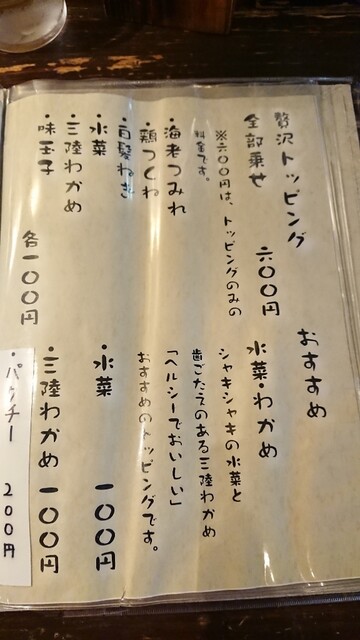 贅沢トッピング
全部乗せ 六〇〇円
※六〇〇円は、トッピングのみの
料金です。
・海老つみれ
・鶏つくね
・白髪ねぎ
・水菜
・三陸わかめ
・味玉子
各一〇〇円
おすすめ
水菜・わかめ
シャキシャキの水菜と
歯ごたえのある三陸わかめ
「ヘルシーでおいしい」
おすすめのトッピングです。
・水菜 一〇〇円
・三陸わかめ 一〇〇円
・パクチー 200円